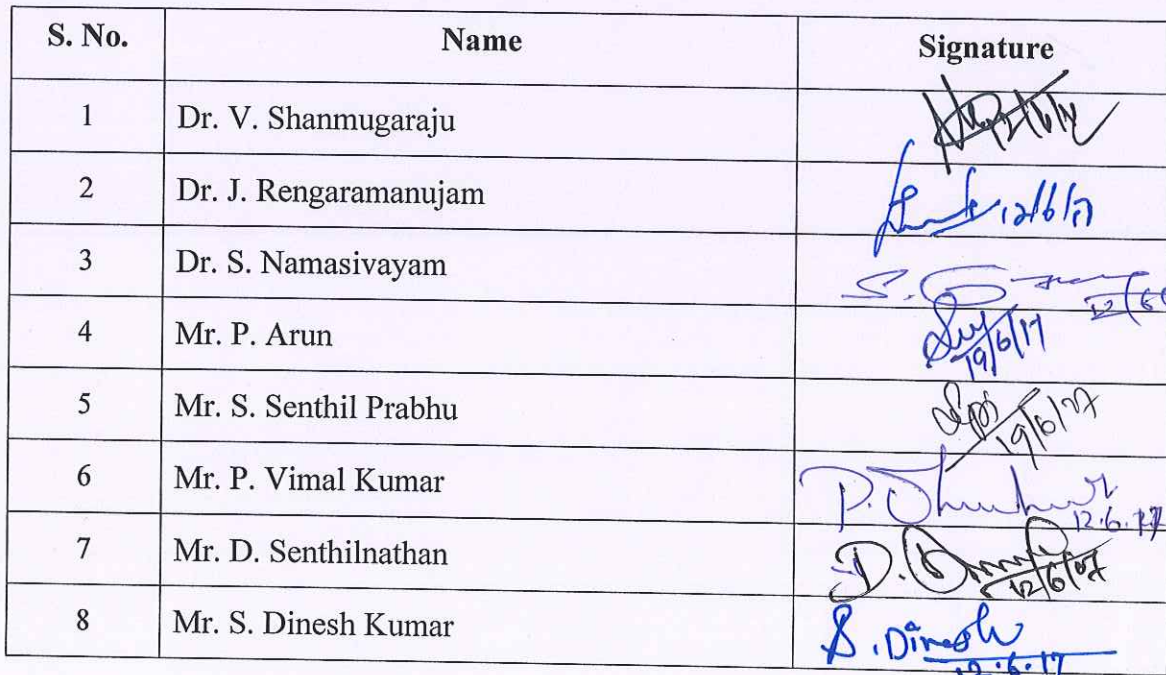 S. No. Name Signature
1 Dr. V. Shanmugaraju 12/6/17
2 Dr. J. Rengaramanujam 12/6/17
3 Dr. S. Namasivayam S.
4 Mr. P. Arun 19/6/17
5 Mr. S. Senthil Prabhu
6 Mr. P. Vimal Kumar P. 12.6.17
7 Mr. D. Senthilnathan D.
8 Mr. S. Dinesh Kumar S. Dinesh
12.6.17